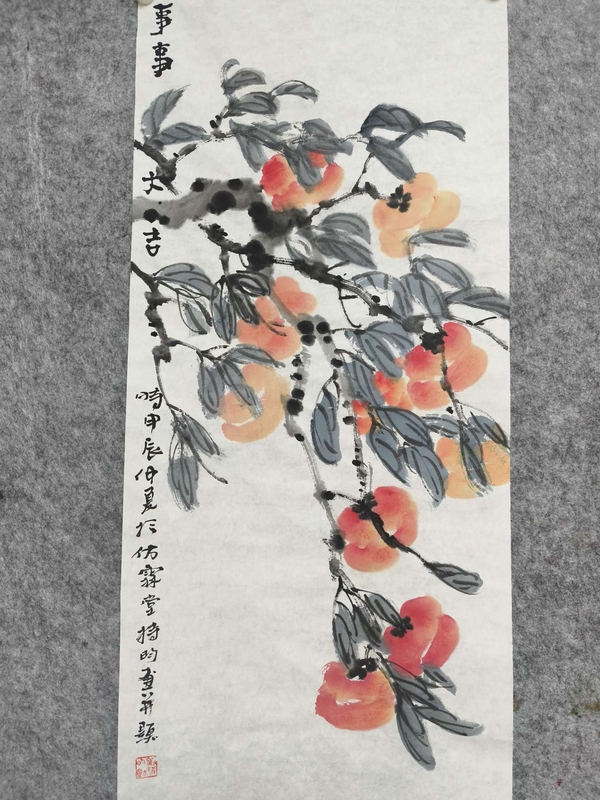 事事
大吉
時甲辰仲夏於仿霖堂持昀畫并題